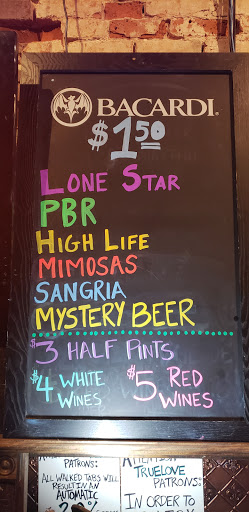 BACARDI.
$1.50
LONE STAR
PBR
HIGH LIFE
MIMOSAS
SANGRIA
MYSTERY BEER
$3 HALF PINTS
$4 WHITE WINES
$5 RED WINES
PATRONS:
ALL WALKED TABS WILL
RESULT IN AN
AUTOMATIC
TRUELOVE
PATRONS:
IN ORDER TO